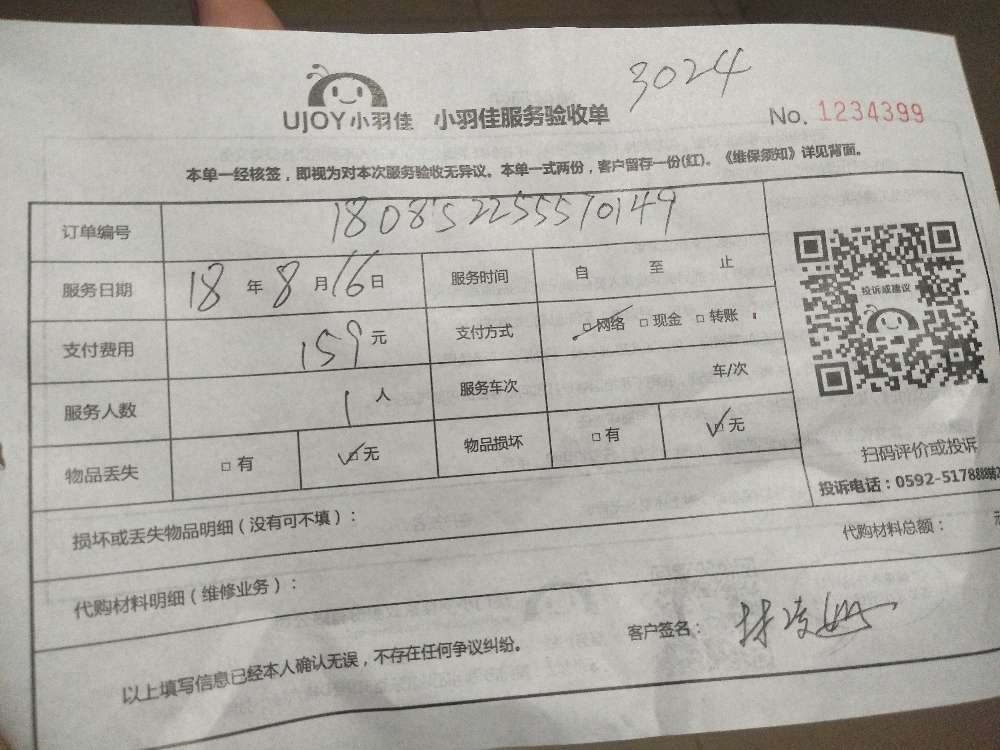 3024
UJOY小羽佳 小羽佳服务验收单 No. 1234399
本单一经核签，即视为对本次服务验收无异议。本单一式两份，客户留存一份(红)。《维保须知》详见背面。
订单编号 180852255570149
服务日期 18年8月16日 服务时间 自 至 止
投诉或建议
支付费用 159元 支付方式 □网络 □现金 □转账
服务人数 1人 服务车次 车/次
物品丢失 □有 □无 物品损坏 □有 □无
扫码评价或投诉
投诉电话：0592-5178
损坏或丢失物品明细（没有可不填）：
代购材料明细（维修业务）： 代购材料总额：
以上填写信息已经本人确认无误，不存在任何争议纠纷。 客户签名：